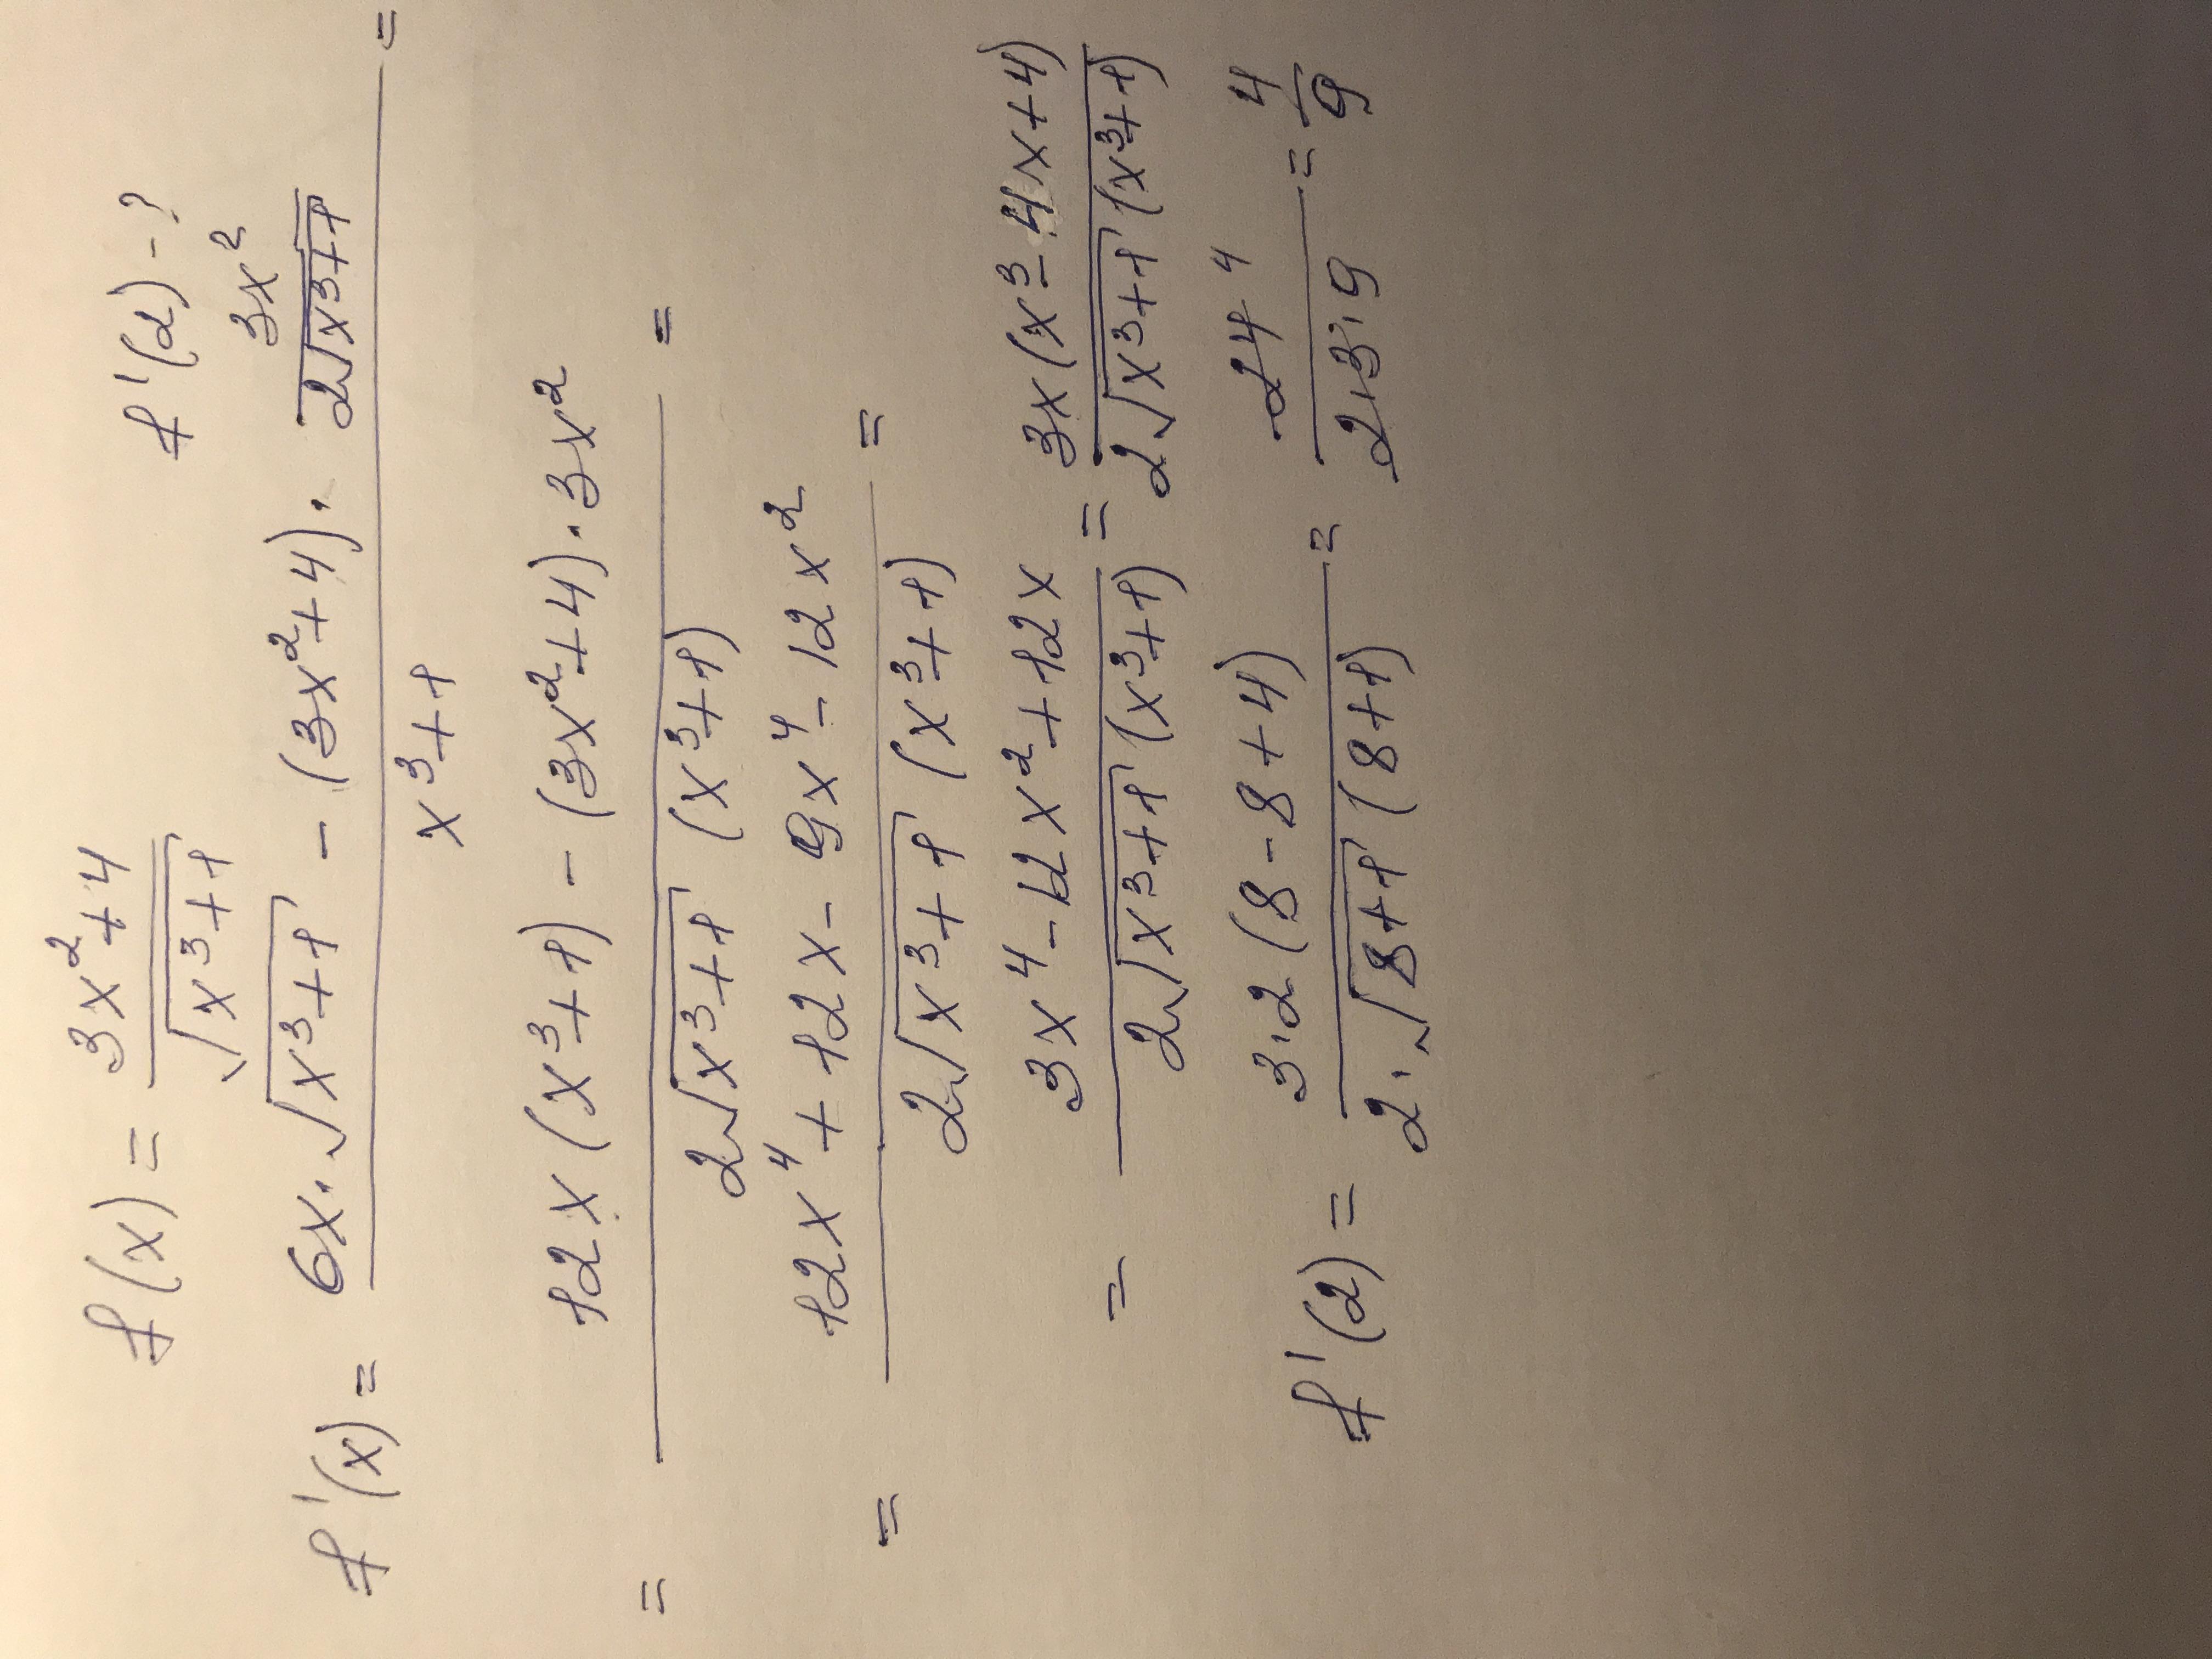 f(x) = (3x²+4)/√(x³+1)    f'(2) - ?
f'(x) = (6x·√(x³+1) - (3x²+4)·(3x²)/(2√(x³+1)))/(x³+1) =
= (12x(x³+1) - (3x²+4)·3x²)/(2√(x³+1) (x³+1)) =
= (12x⁴+12x - 9x⁴ - 12x²)/(2√(x³+1) (x³+1)) =
= (3x⁴ - 12x² + 12x)/(2√(x³+1) (x³+1)) = (3x(x³ - 4x + 4))/(2√(x³+1) (x³+1))
f'(2) = (3·2(8 - 8 + 4))/(2·√(8+1) (8+1)) = (24 4)/(2·3·9) = 4/9